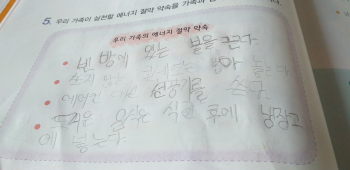 5. 우리 가족이 실천할 에너지 절약 약속을 가족과
우리 가족의 에너지 절약 약속
• 빈 방에 있는 불을 끈다.
• 쓰지 않는 뽑아 놓는다
• 에어컨 대신 선풍기를 쓴다
• 뜨거운 음식은 식힌 후에 냉장고
에 넣는다.